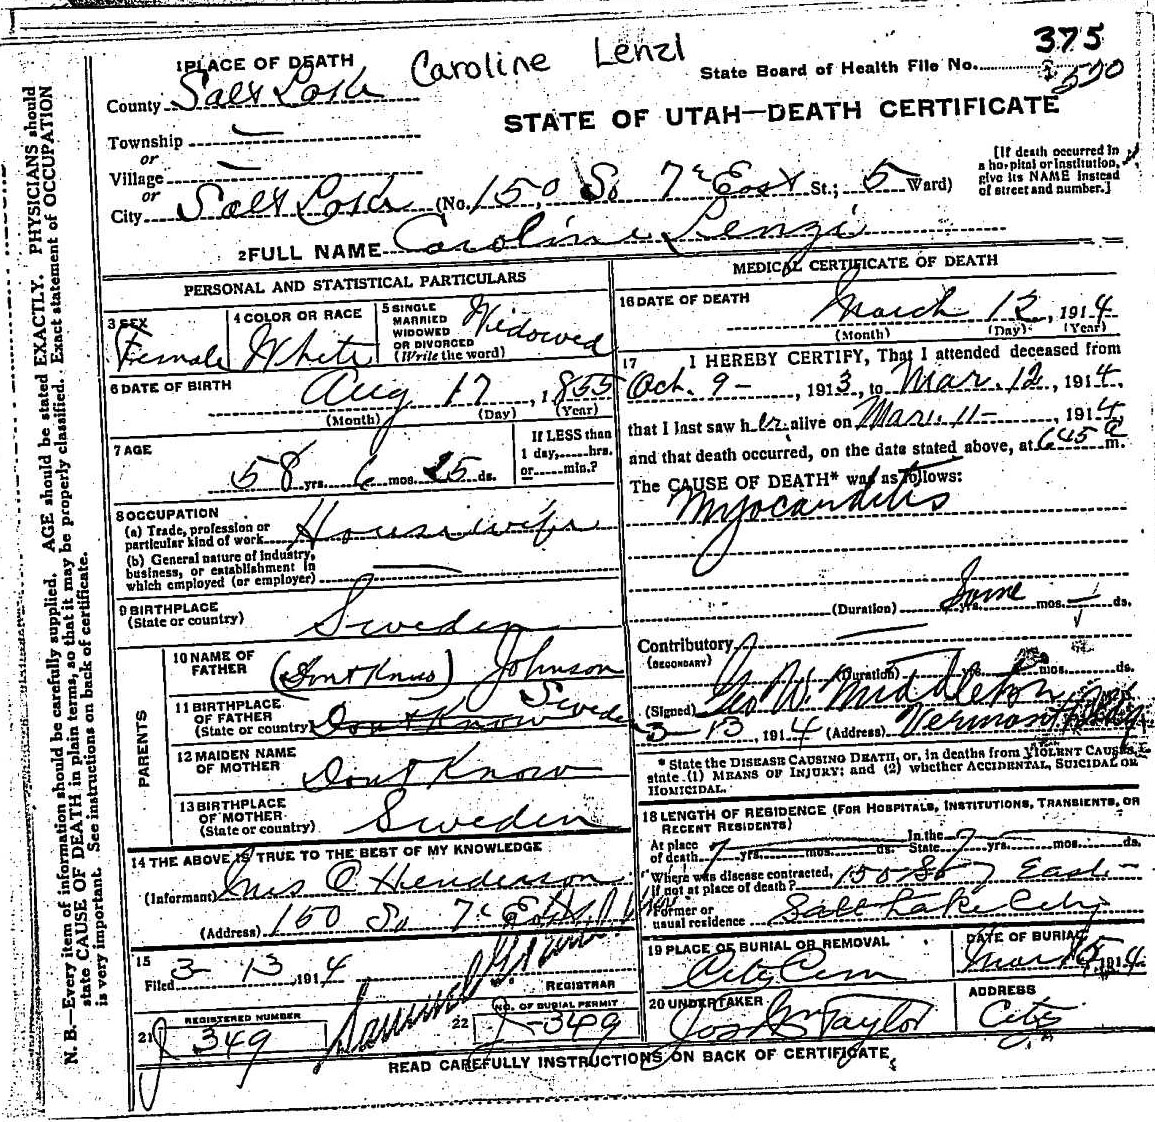 375
1 PLACE OF DEATH Caroline Lenzl State Board of Health File No. 500
County Salt Lake
STATE OF UTAH—DEATH CERTIFICATE
Township —
or
Village —
or
[If death occurred in a hospital or institution, give its NAME instead of street and number.]
City Salt Lake (No. 150 So 7th East St.; 5 Ward)
2 FULL NAME Caroline Lenzi
PERSONAL AND STATISTICAL PARTICULARS
3 SEX Female
4 COLOR OR RACE White
5 SINGLE MARRIED WIDOWED OR DIVORCED (Write the word) Widowed
6 DATE OF BIRTH Aug 17, 1855
(Month) (Day) (Year)
7 AGE 58 yrs. 6 mos. 25 ds.
If LESS than 1 day,......hrs. or......min.?
8 OCCUPATION
(a) Trade, profession or particular kind of work Housewife
(b) General nature of industry, business, or establishment in which employed (or employer) —
9 BIRTHPLACE (State or country) Sweden
PARENTS
10 NAME OF FATHER (Dont Know) Johnson
11 BIRTHPLACE OF FATHER (State or country) Dont Know Sweden
12 MAIDEN NAME OF MOTHER Dont Know
13 BIRTHPLACE OF MOTHER (State or country) Sweden
14 THE ABOVE IS TRUE TO THE BEST OF MY KNOWLEDGE
(Informant) Mrs O Henderson
(Address) 150 So 7th East
15 Filed 3 - 13, 1914
REGISTRAR
21 REGISTERED NUMBER 349
22 NO. OF BURIAL PERMIT 349
MEDICAL CERTIFICATE OF DEATH
16 DATE OF DEATH March 12, 1914
(Month) (Day) (Year)
17 I HEREBY CERTIFY, That I attended deceased from
Oct. 9 -, 1913, to Mar. 12, 1914,
that I last saw her alive on Mar. 11 -, 1914,
and that death occurred, on the date stated above, at 645 a m.
The CAUSE OF DEATH* was as follows:
Myocarditis
(Duration) Some yrs. mos. ds.
Contributory (SECONDARY) —
(Duration) yrs. mos. ds.
(Signed) Geo W. Middleton
3 - 13, 1914 (Address) Vermont Bldg
* State the DISEASE CAUSING DEATH, or, in deaths from VIOLENT CAUSES, state (1) MEANS OF INJURY; and (2) whether ACCIDENTAL, SUICIDAL OR HOMICIDAL.
18 LENGTH OF RESIDENCE (FOR HOSPITALS, INSTITUTIONS, TRANSIENTS, OR RECENT RESIDENTS)
At place of death 7 yrs. mos. ds. In the State 7 yrs. mos. ds.
Where was disease contracted, if not at place of death? 150 So 7 East -
Former or usual residence Salt Lake City
19 PLACE OF BURIAL OR REMOVAL City Cem
DATE OF BURIAL Mar 15, 1914
20 UNDERTAKER Jos Wm Taylor
ADDRESS City
READ CAREFULLY INSTRUCTIONS ON BACK OF CERTIFICATE
N. B.—Every item of information should be carefully supplied. AGE should be stated EXACTLY. PHYSICIANS should
state CAUSE OF DEATH in plain terms, so that it may be properly classified. Exact statement of OCCUPATION
is very important. See instructions on back of certificate.